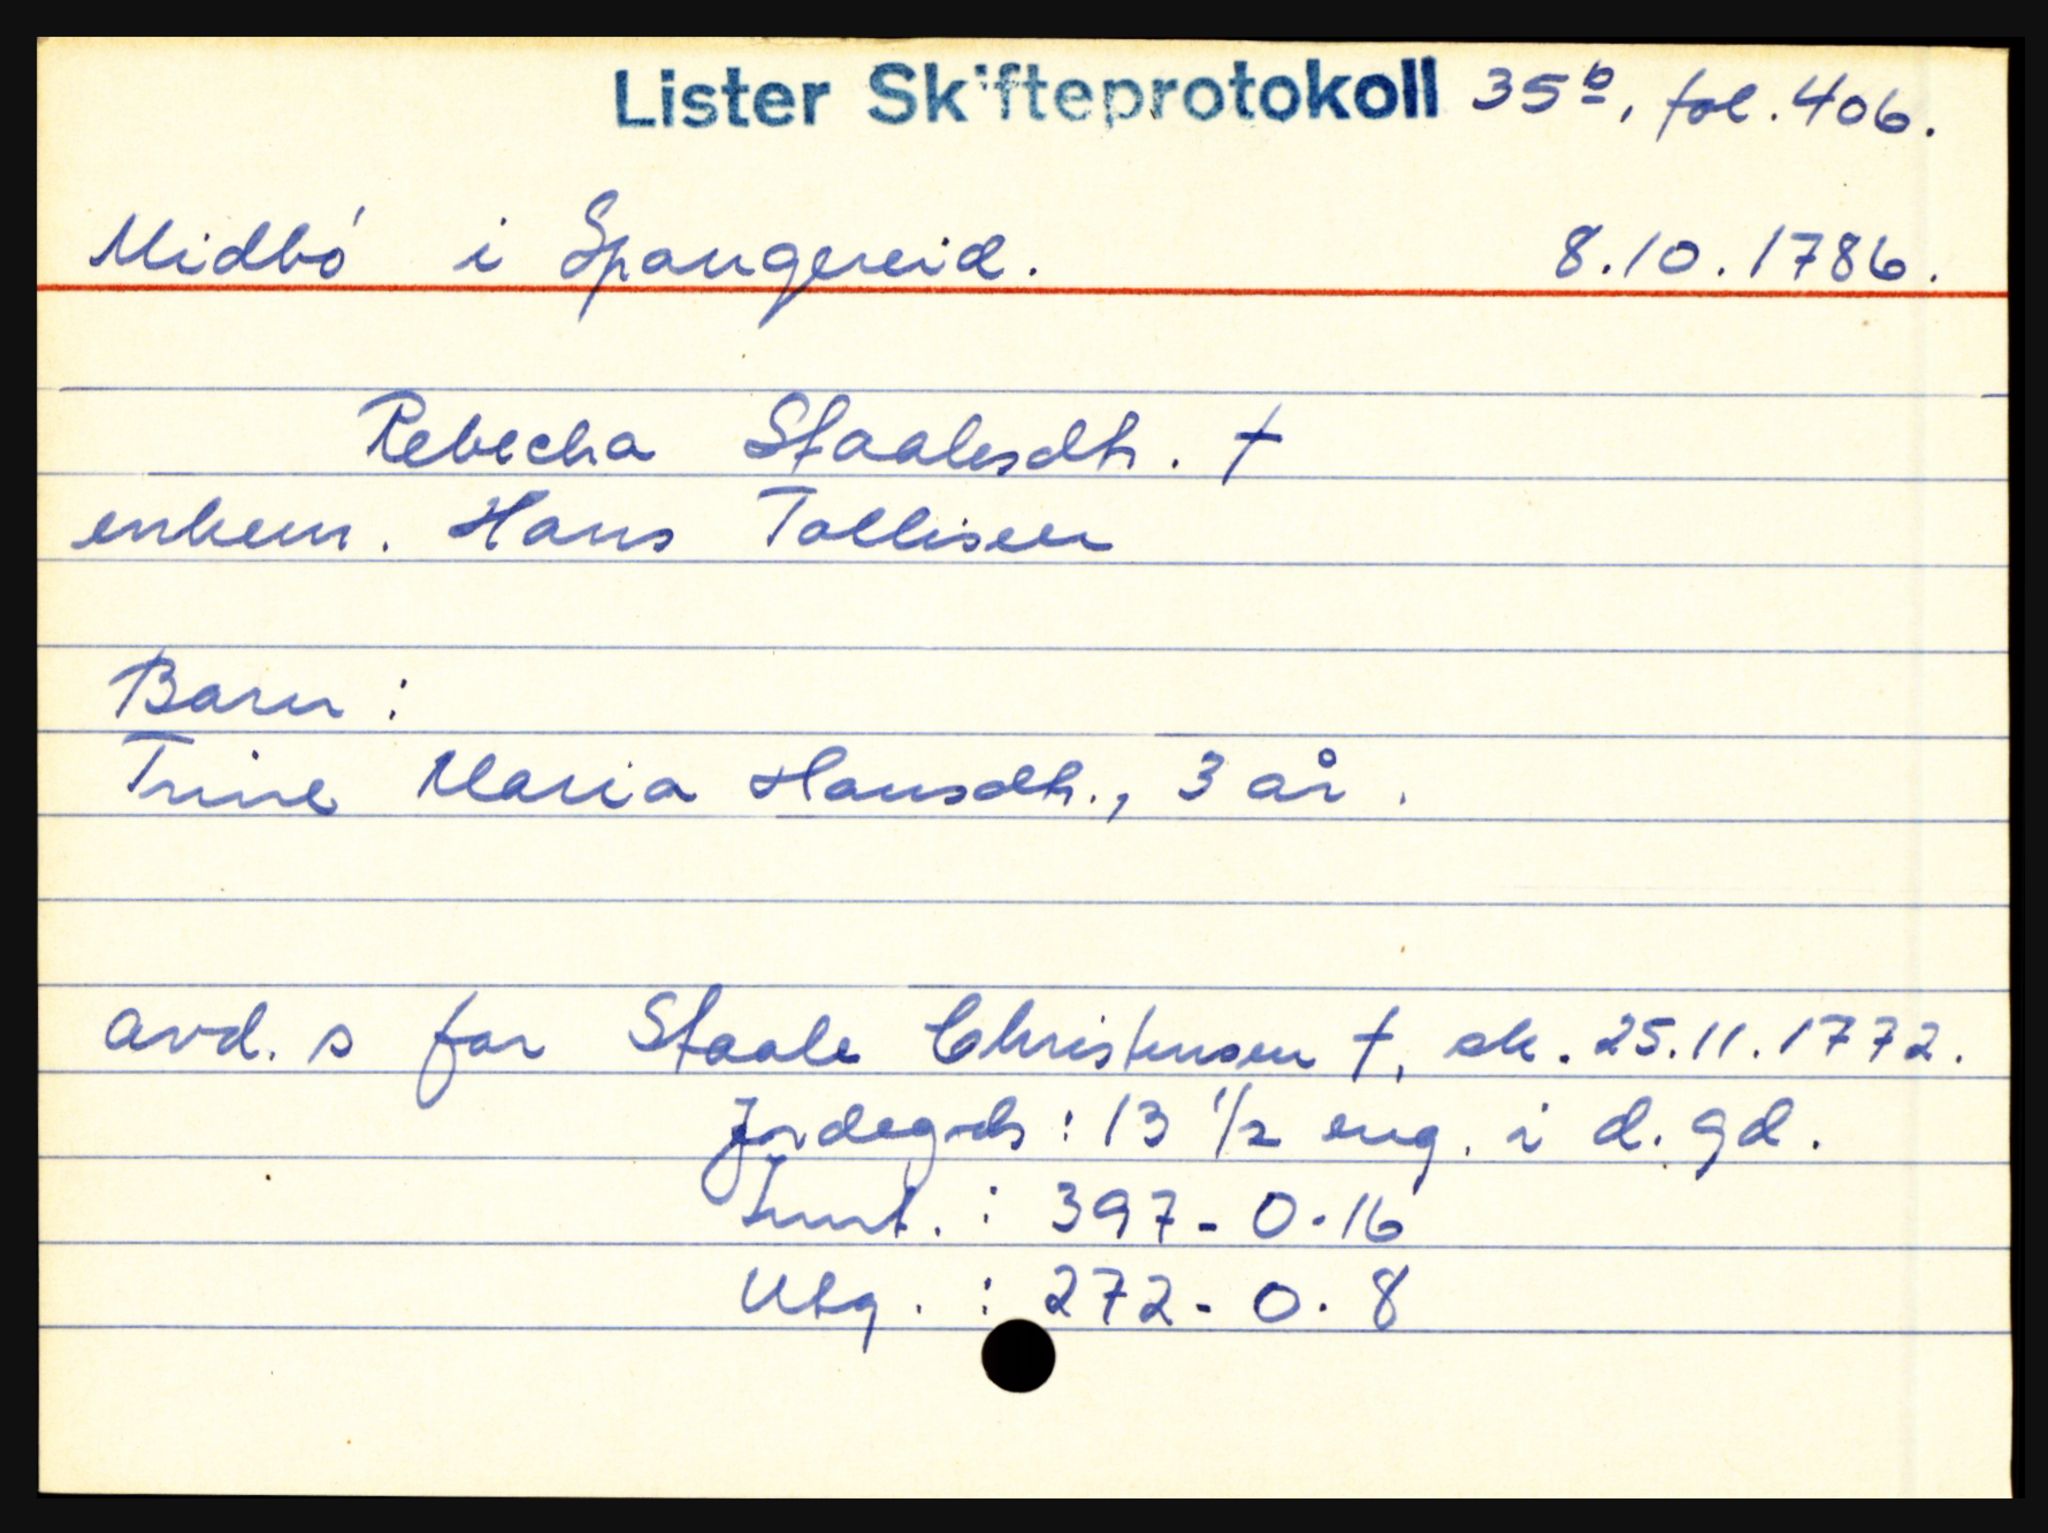 Lister Skifteprotokoll 35b, fol. 406.
Midbó i Spangereid. 8.10.1786.
Rebecha Staalesdtr. †
enkem. Hans Tollisen
Barn:
Trine Maria Hansdtr., 3 år.
avd. s far Staale Christensen †, sk. 25.11.1772.
Jordegods: 13 1/2 eng. i d. gd.
Innt.: 397 - 0 - 16
Utg.: 272 - 0 - 8